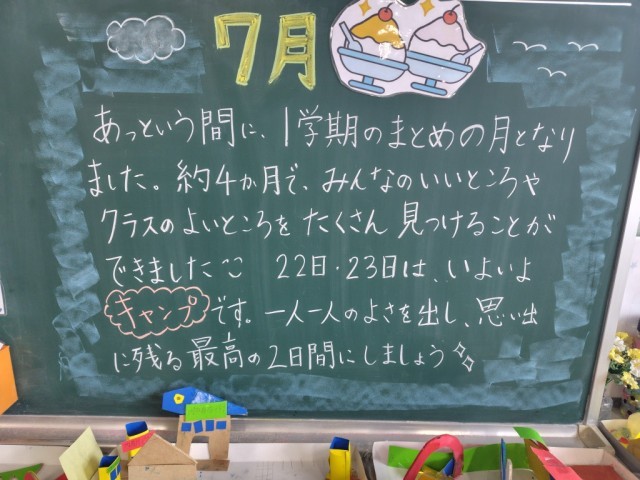 7月
あっという間に、1学期のまとめの月となり
ました。約4か月で、みんなのいいところや
クラスのよいところをたくさん見つけることが
できました 22日・23日は、いよいよ
キャンプです。一人一人のよさを出し、思い出
に残る最高の2日間にしましょう